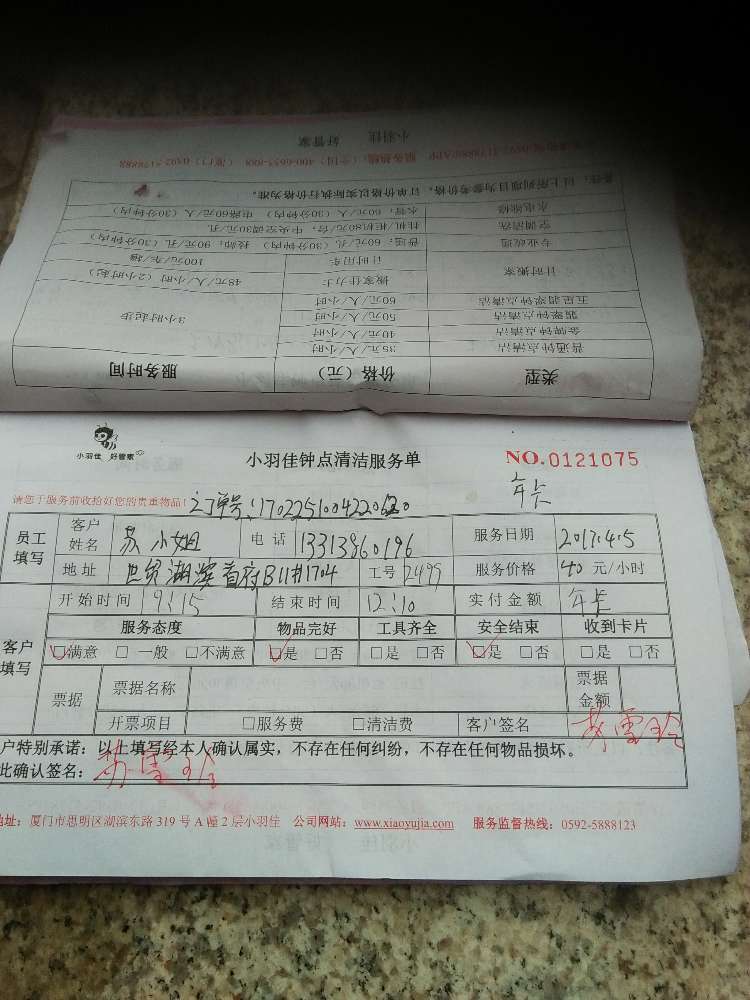 小羽佳 好管家
服务热线：(全国) 400-6655-888 (厦门) 0592-5178888
备注：以上所列项目为参考价格，订单价格以实际执行价格为准。
水电维修 水管：60元/人 (30分钟内) 电路60元/人 (30分钟内)
空调清洗 挂机柜机80元/台，中央空调30元/孔
专业疏通 普通：60元/孔 (30分钟内) 技师：90元/孔 (30分钟内)
计时搬家 搬家佳力士 48元/人/小时 (2小时起)
计时用车 100元/车/趟
五星翡翠钟点清洁 60元/人/小时 3小时起步
翡翠钟点清洁 50元/人/小时
金牌钟点清洁 40元/人/小时
普通钟点清洁 35元/人/小时
类型 价格（元） 服务时间
小羽佳 好管家
小羽佳钟点清洁服务单 NO.0121075
年卡
请您于服务前收拾好您的贵重物品！ 订单号：
员工填写 客户姓名 苏小姐 电话 13313860196 服务日期 2017.4.5
地址 世贸湖滨首府B11#1704 工号 2499 服务价格 40 元/小时
客户填写 开始时间 9:15 结束时间 12:10 实付金额 年卡
服务态度 物品完好 工具齐全 安全结束 收到卡片
☑满意 □一般 □不满意 ☑是 □否 □是 □否 ☑是 □否 □是 □否
票据 票据名称 票据金额
开票项目 □服务费 □清洁费 客户签名 苏雪玲
户特别承诺：以上填写经本人确认属实，不存在任何纠纷，不存在任何物品损坏。
此确认签名： 苏雪玲
地址：厦门市思明区湖滨东路 319 号 A 幢 2 层小羽佳 公司网站：www.xiaoyujia.com 服务监督热线：0592-5888123